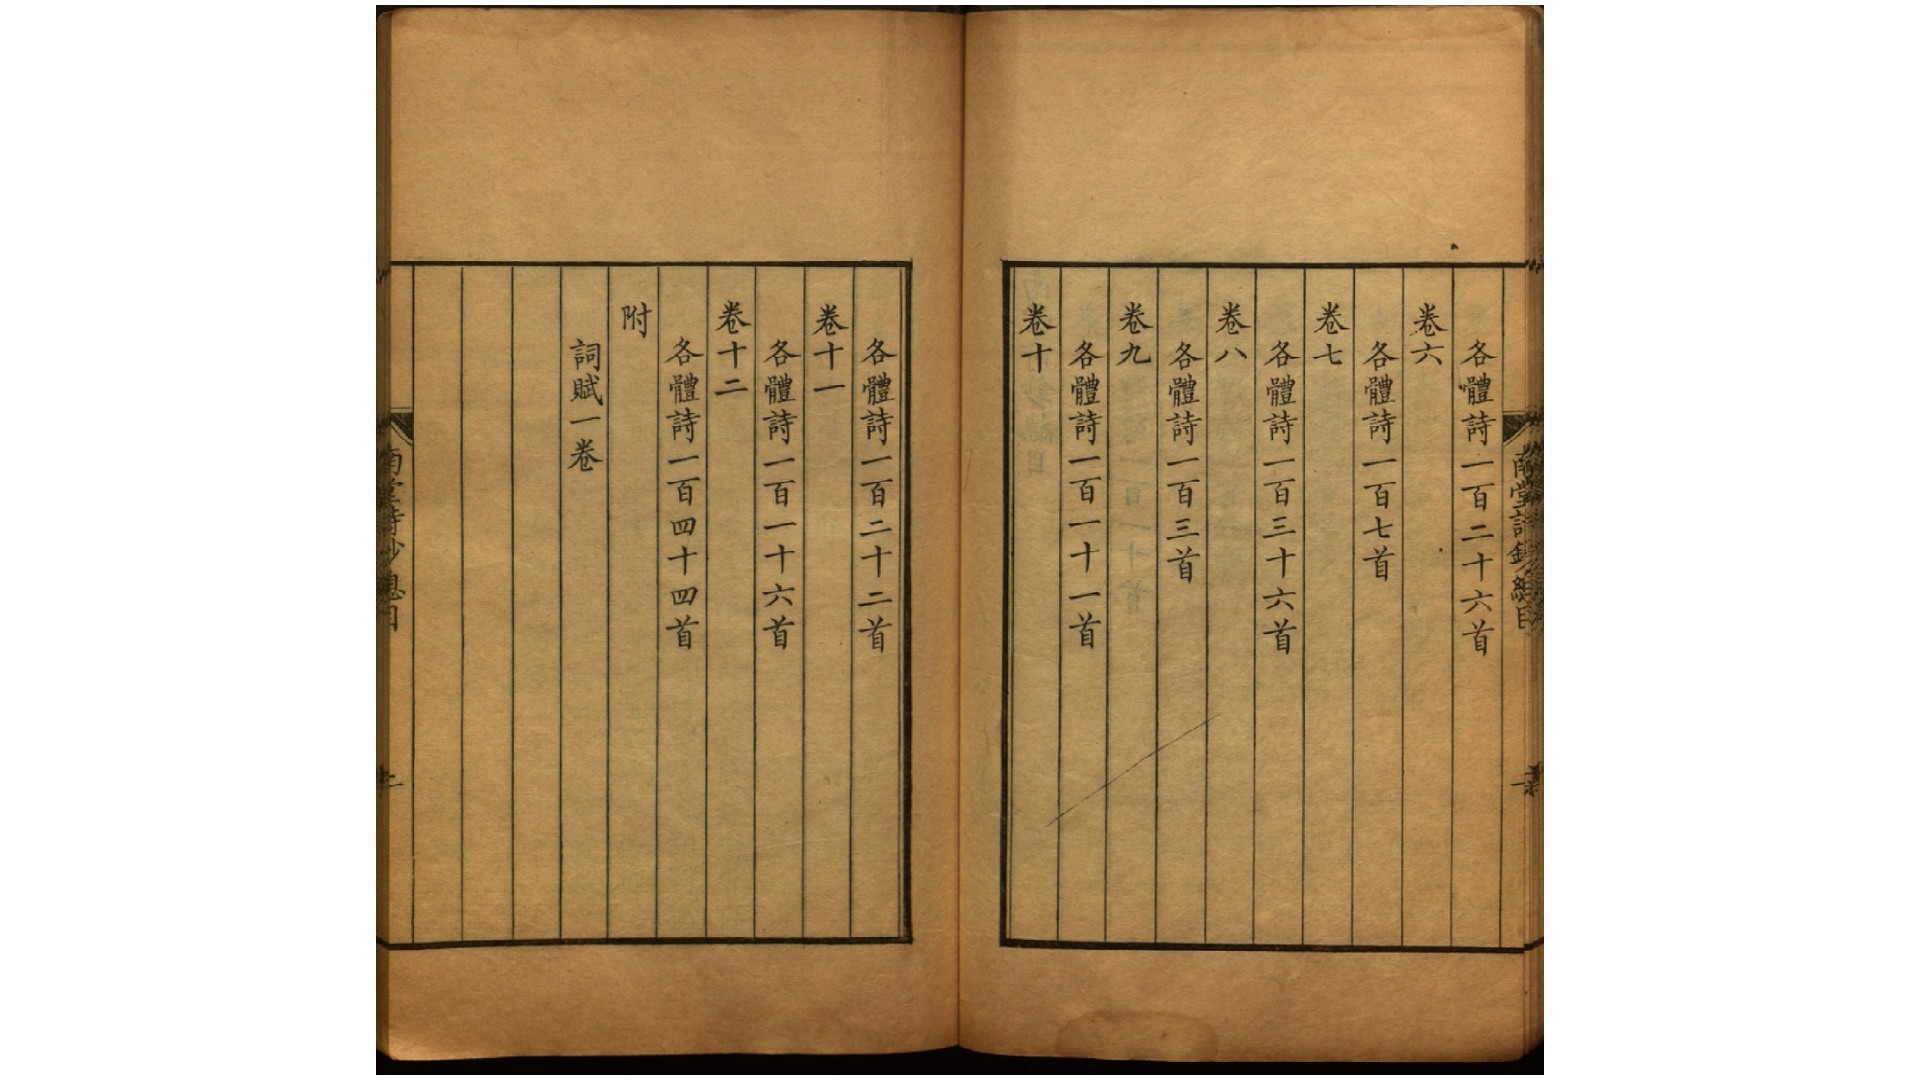 南堂詩鈔總目
各體詩一百二十六首
卷六
各體詩一百七首
卷七
各體詩一百三十六首
卷八
各體詩一百三首
卷九
各體詩一百一十一首
卷十
各體詩一百二十二首
卷十一
各體詩一百一十六首
卷十二
各體詩一百四十四首
附
詞賦一卷
南堂詩鈔總目
二